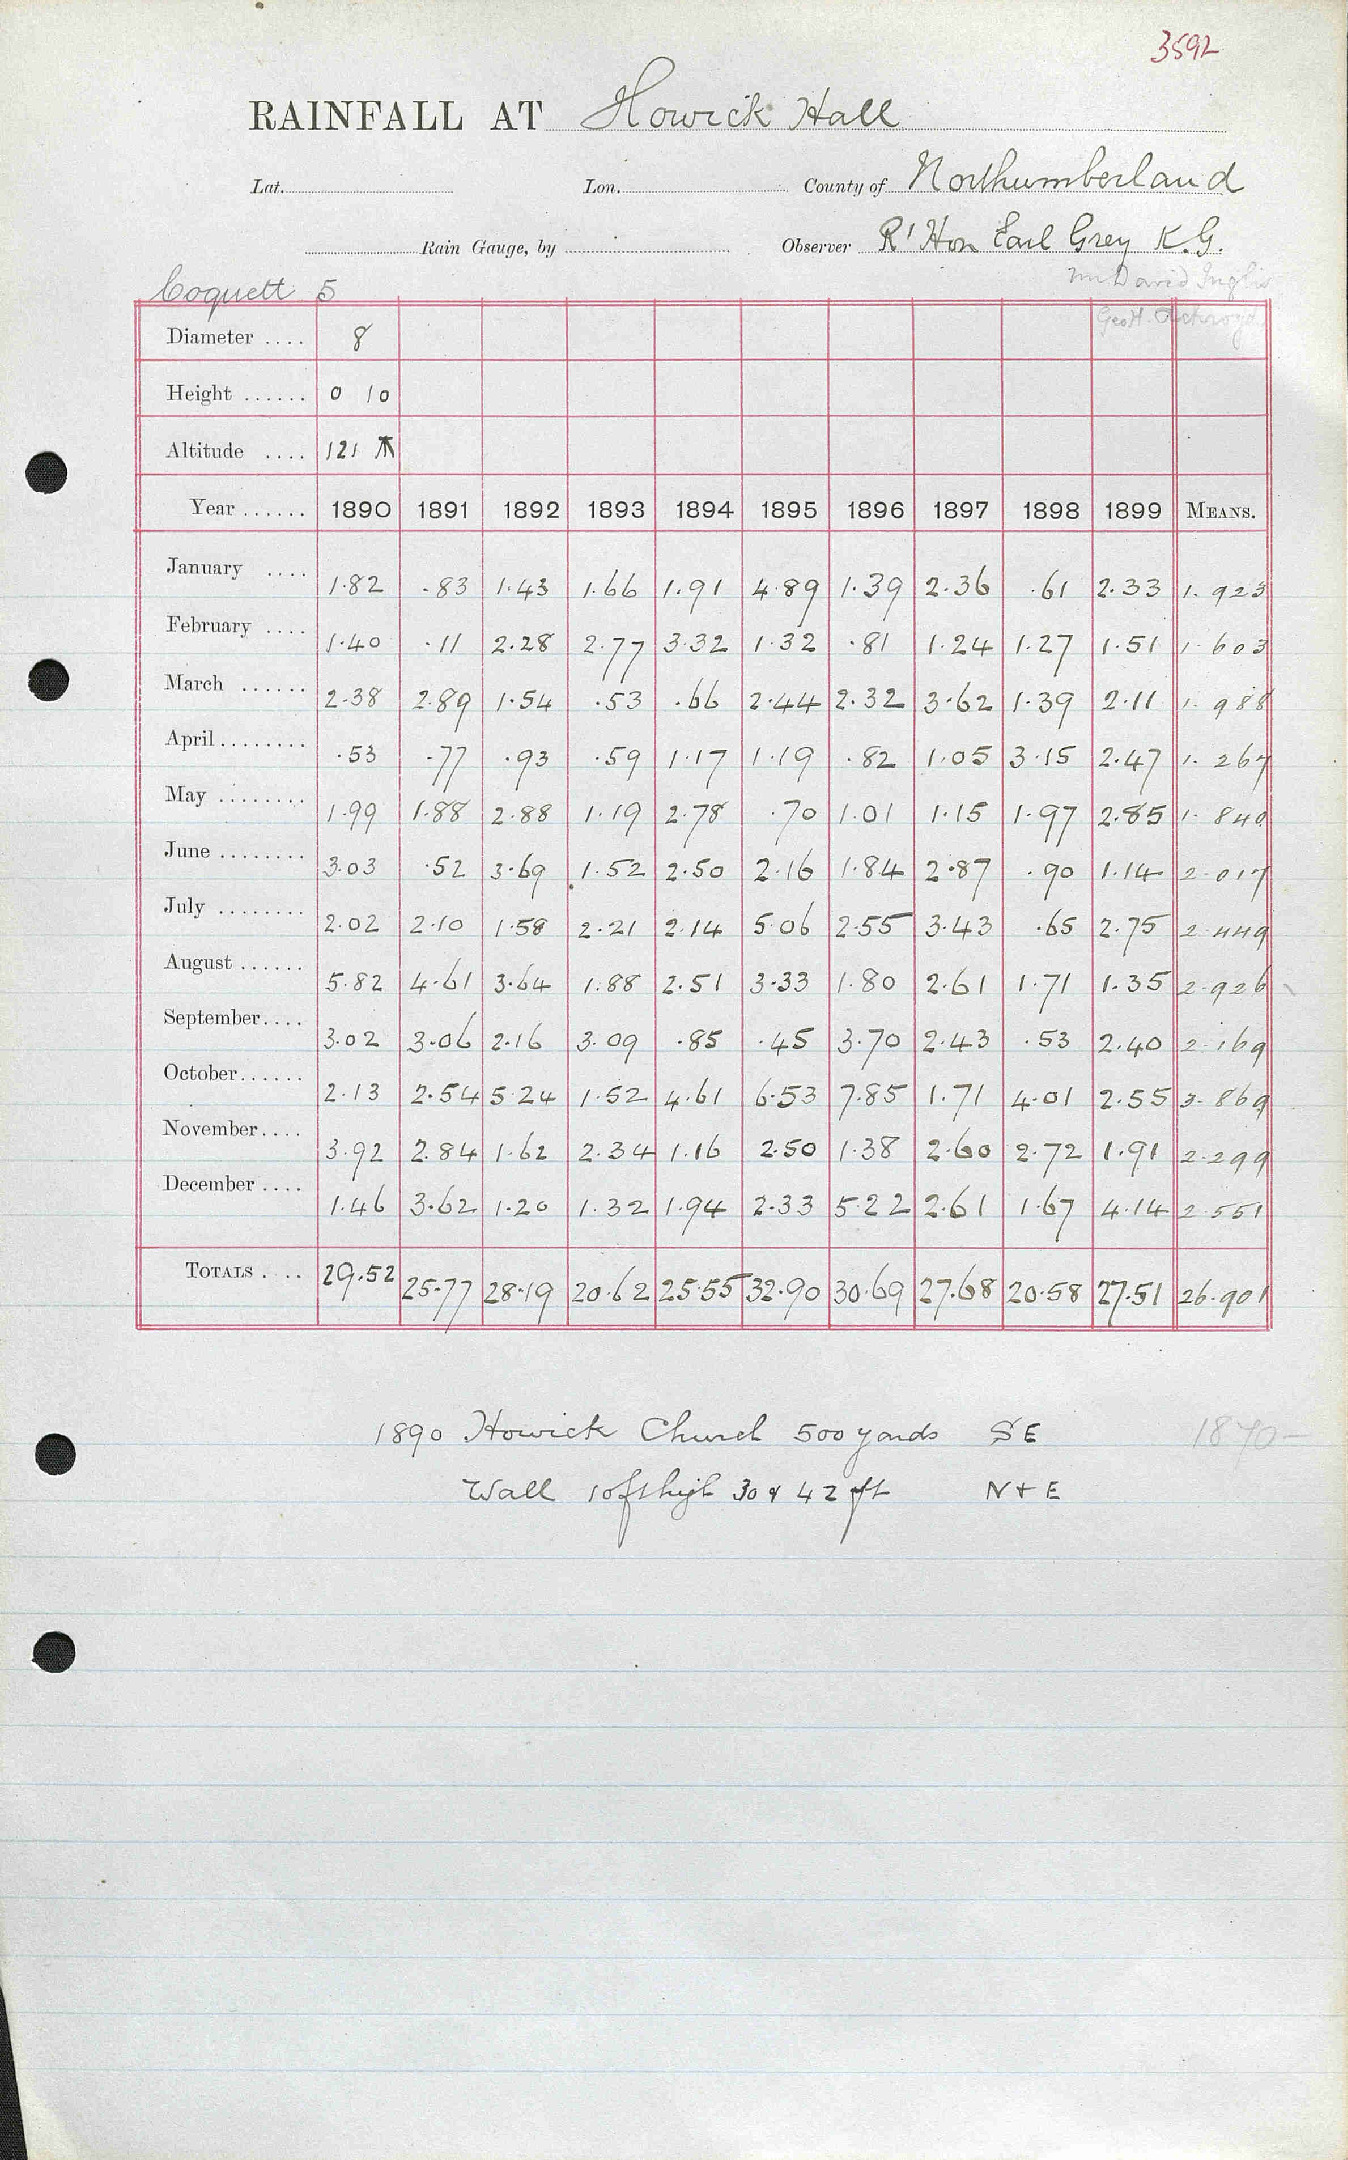 3592
RAINFALL AT Howick Hall
Lat. Lon. County of Northumberland
Rain Gauge, by Observer Rt Hon Earl Grey K.G.
Coquett 5 Mr David Inglis
Geo H.
Diameter .... 8
Height ...... 0 10
Altitude .... 121
Year ...... 1890 1891 1892 1893 1894 1895 1896 1897 1898 1899 MEANS.
January .... 1.82 .83 1.43 1.66 1.91 4.89 1.39 2.36 .61 2.33 1.923
February .... 1.40 .11 2.28 2.77 3.32 1.32 .81 1.24 1.27 1.51 1.603
March ...... 2.38 2.89 1.54 .53 .66 2.44 2.32 3.62 1.39 2.11 1.988
April ........ .53 .77 .93 .59 1.17 1.19 .82 1.05 3.15 2.47 1.267
May ........ 1.99 1.88 2.88 1.19 2.78 .70 1.01 1.15 1.97 2.85 1.840
June ........ 3.03 .52 3.69 1.52 2.50 2.16 1.84 2.87 .90 1.14 2.017
July ........ 2.02 2.10 1.58 2.21 2.14 5.06 2.55 3.43 .65 2.75 2.449
August ...... 5.82 4.61 3.64 1.88 2.51 3.33 1.80 2.61 1.71 1.35 2.926
September.... 3.02 3.06 2.16 3.09 .85 .45 3.70 2.43 .53 2.40 2.169
October...... 2.13 2.54 5.24 1.52 4.61 6.53 7.85 1.71 4.01 2.55 3.869
November.... 3.92 2.84 1.62 2.34 1.16 2.50 1.38 2.60 2.72 1.91 2.299
December .... 1.46 3.62 1.20 1.32 1.94 2.33 5.22 2.61 1.67 4.14 2.551
TOTALS .... 29.52 25.77 28.19 20.62 25.55 32.90 30.69 27.68 20.58 27.51 26.901
1890 Howick Church 500 yards SE 1870-
Wall 10ft high 30 & 42 ft N + E